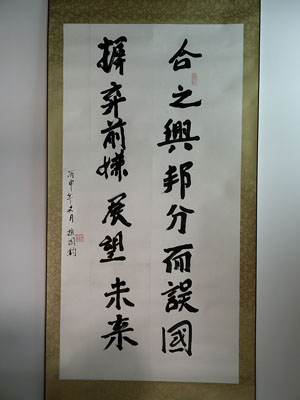 合之興邦分而誤國
摒弃前嫌展望未来
丙申年